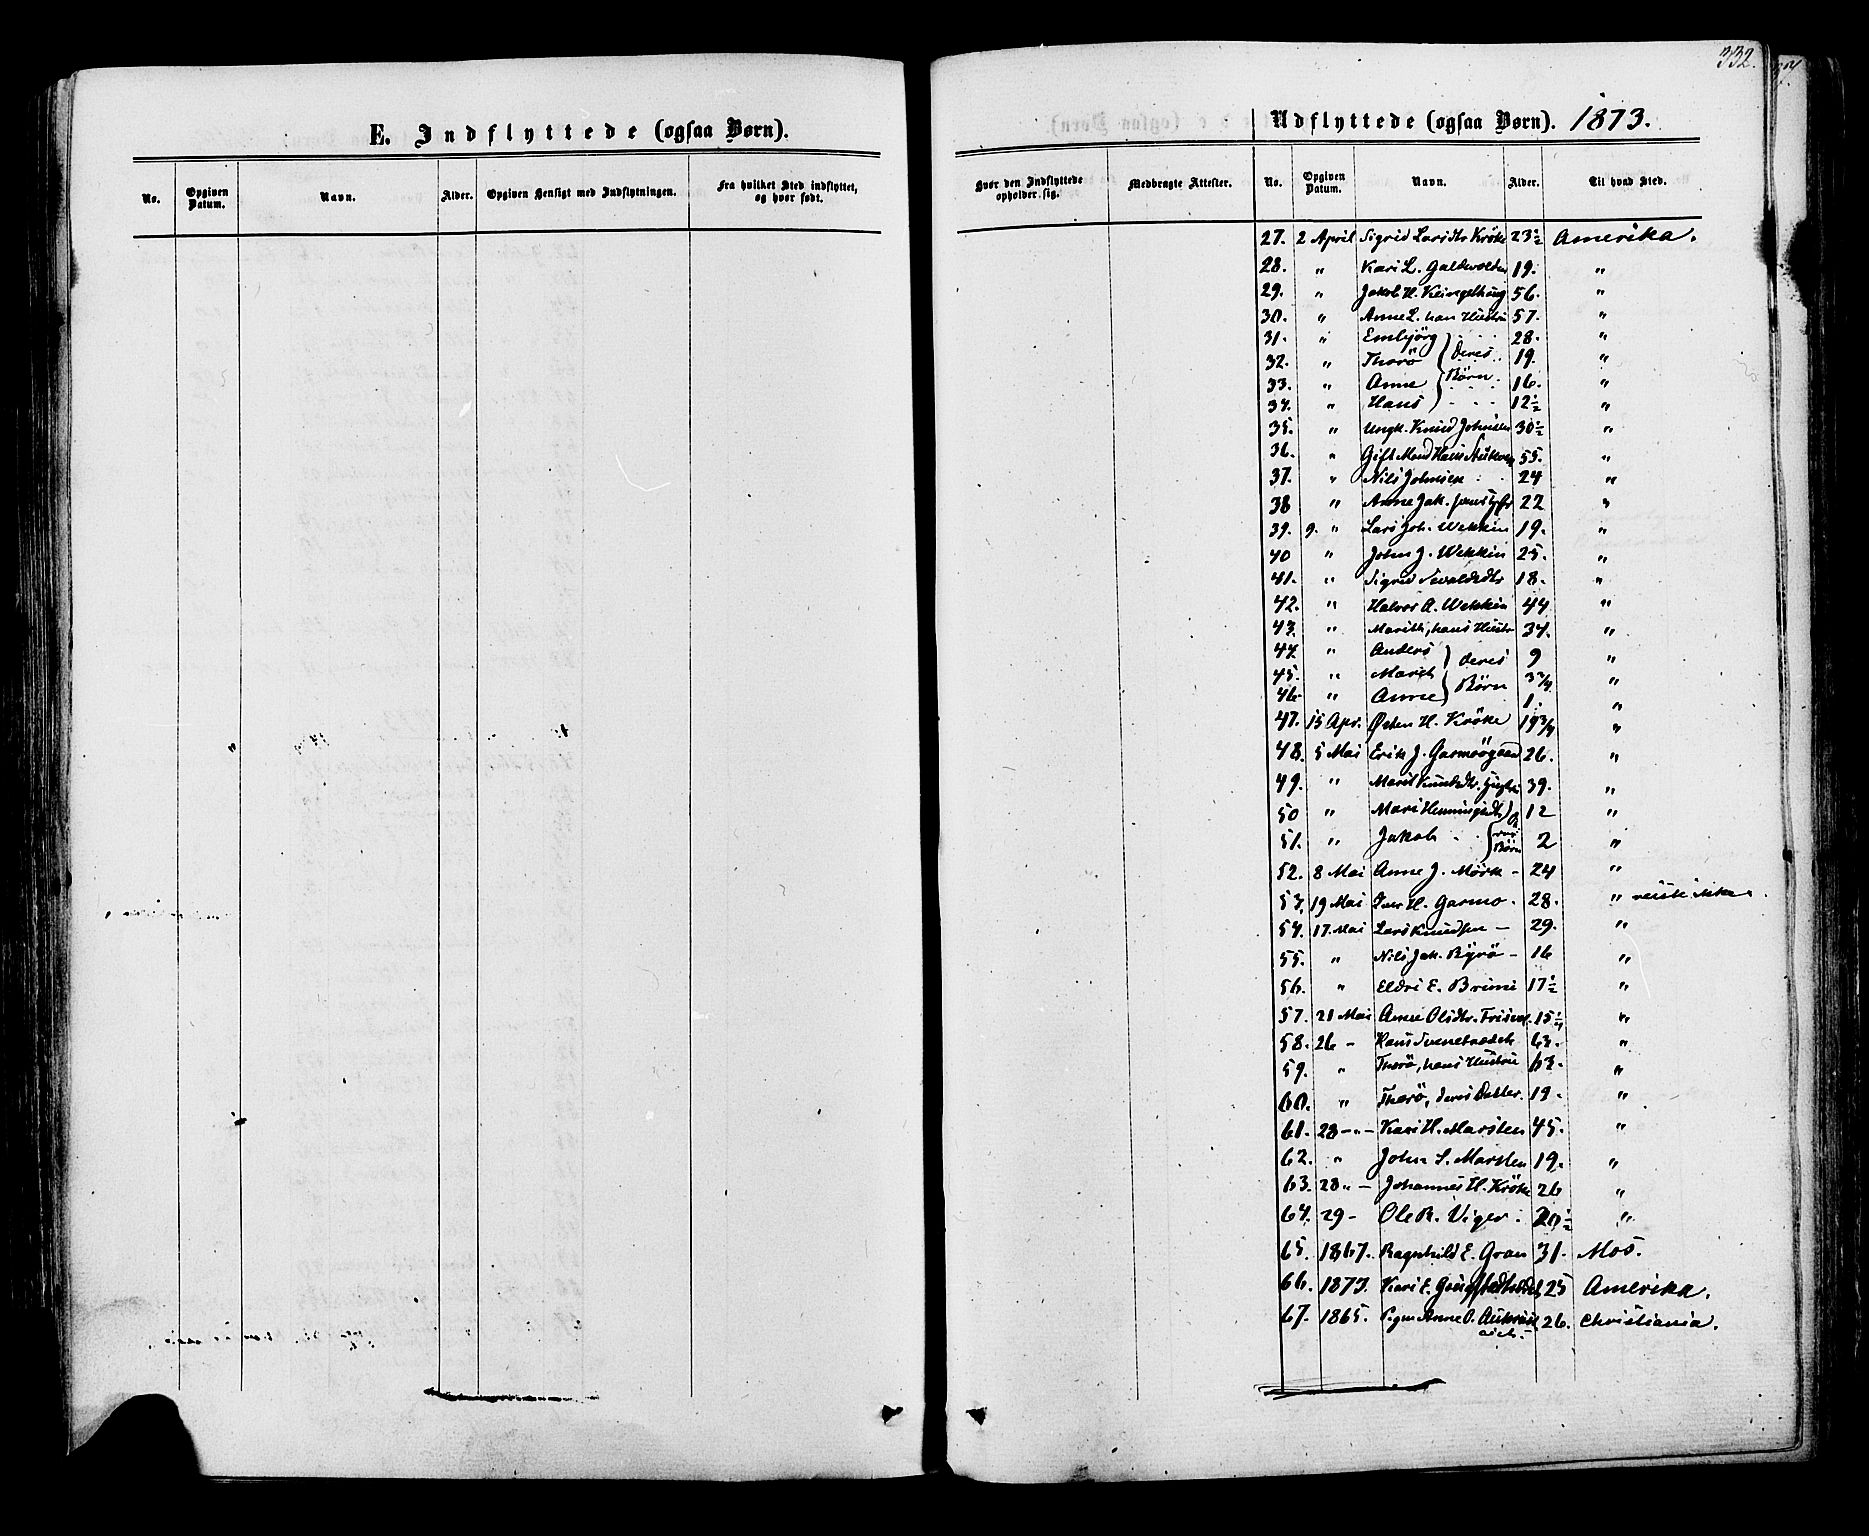 332.
E. Indflyttede (ogsaa Børn).
No. Opgiven Datum. Navn. Alder. Opgiven Hensigt med Indflytningen. Fra hvilket Sted indflyttet, og hvor født.
Udflyttede (ogsaa Børn). 1873.
Hvor den Indflyttede opholder sig. Medbragte Attester. No. Opgiven Datum. Navn. Alder. Til hvad Sted.
27. 2 April Sigrid Larsdtr Kröke 23½ Amerika.
28. " Kari L. Galdevolden 19. "
29. " Jakob H. Klingelhaug 56. "
30. " Anne L. han Hustru 57. "
31. " Embjörg 28. "
32. " Thorö } Deres 19. "
33. " Anne } Börn 16. "
34. " Hans 12½ "
35. " Ungk. Knud Johnsen 30½ "
36. " Gift Mand Hans 55. "
37. " Nils Johnsen 24 "
38 " Anne Jak. 22 "
39. 9. " Lars Joh. Wekkin 19. "
40 " John J. Wekkin 25. "
41. " Sigrid Sivaldsdtr 18. "
42. " Halvor A. Wekkin 44 "
43. " Marith, hans Hustr 34. "
44. " Anders } deres 9 "
45. " Marit } Börn 3¾ "
46 " Anne 1. "
47. 15 Apr. Östen H. Kröke 19¾ "
48. 5 Mai Erik J. Garmoögaard 26. "
49. " Marit Knudsdtr. 39. "
50 " Mari Hemmingsdtr 12 "
51. " Jakob Börn 2 "
52. 8 Mai Anne J. Mörk - 24 "
53. 19 Mai Iver H. Garmo. 28. " reiste ikke
54. 17. Mai Lars Knudsen - 29. "
55. " Nils Jak. Byrö - 16 "
56. " Eldri E. Brimi 17½ "
57. 21 Mai Anne Olsdtr. 15½ "
58. 26 - Hans 63. "
59. " Thorö, hans Hustru 63. "
60. " Thorö, deres Datter. 19. "
61. 28 - " - Kari H. Marsten 45. "
62. " John S. Marsten 19. "
63. 28 " - Johannes H. Kröke 26 "
64. 29 - Ole R. Viger. 20½ "
65. 1867. Ragnhild E. Gran 31. Mos.
66. 1873. Kari E. 25 Amerika.
67. 1865. Pigen Anne O. 26. Christiania.